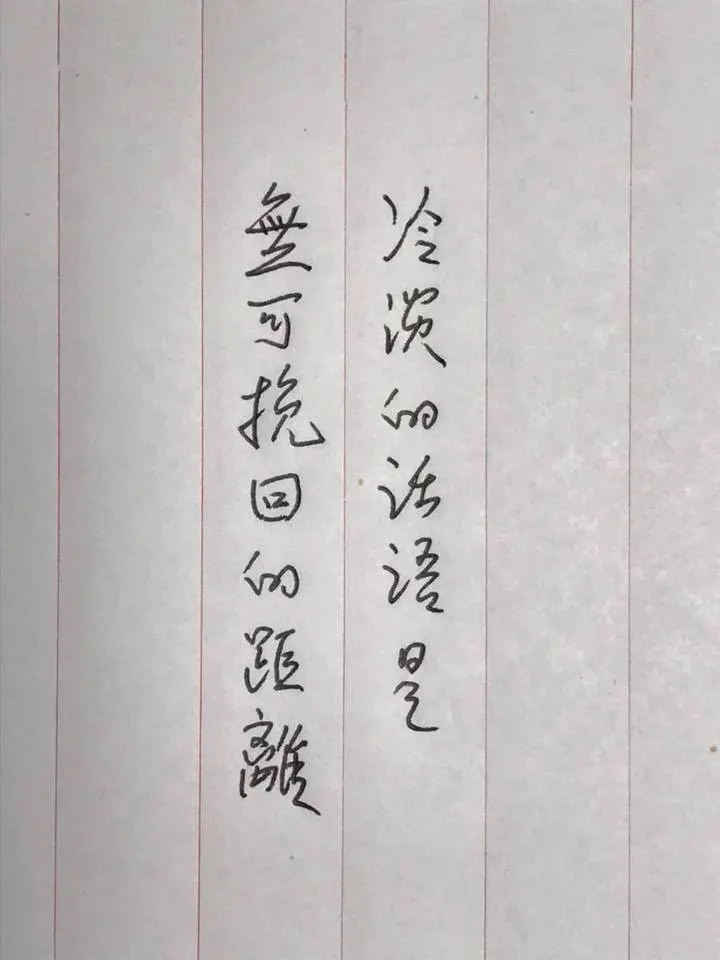 冷淡的话语是
無可挽回的距離